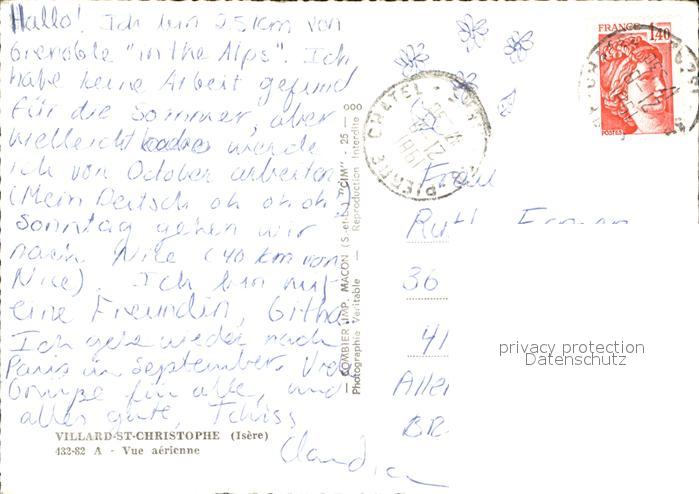 Hallo! Ich bin 25 km von
Grenoble "in the Alps". Ich
habe keine Arbeit gefund
für die Sommer, aber
vielleicht werde
ich von October arbeiten
(Mein Deutsch oh oh oh
Sonntag gehen wir
nach Nice (40 km von
Nice). Ich bin mit
eine Freundin, Githa
Ich gehe wieder nach
Paris in September. Viel
Grüße für alle, und
alles gute, Tchüss
Claudia
VILLARD-ST-CHRISTOPHE (Isère)
432-82 A - Vue aérienne
COMBIER IMP. MACON (S.-et-L.) "CIM" - 25 - 000
Photographie Véritable - Reproduction Interdite
FRANCE
1,40
POSTES
PIERRE CHATEL
Frau
36
41
privacy protection
Datenschutz